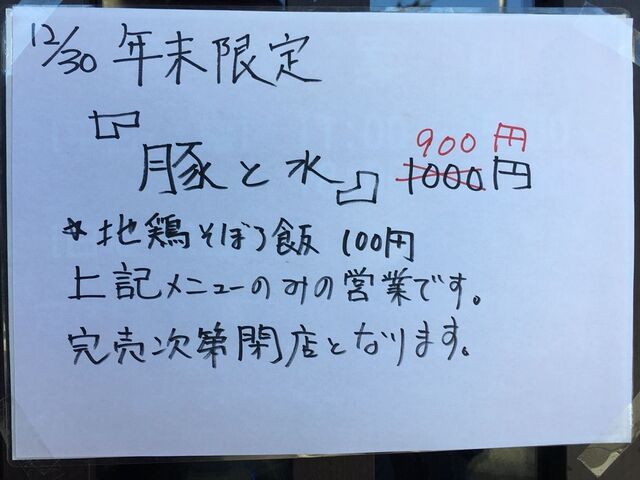 12/30 年末限定
900円
『豚と水』 1000円
*地鶏そぼろ飯 100円
上記メニューのみの営業です。
完売次第閉店となります。